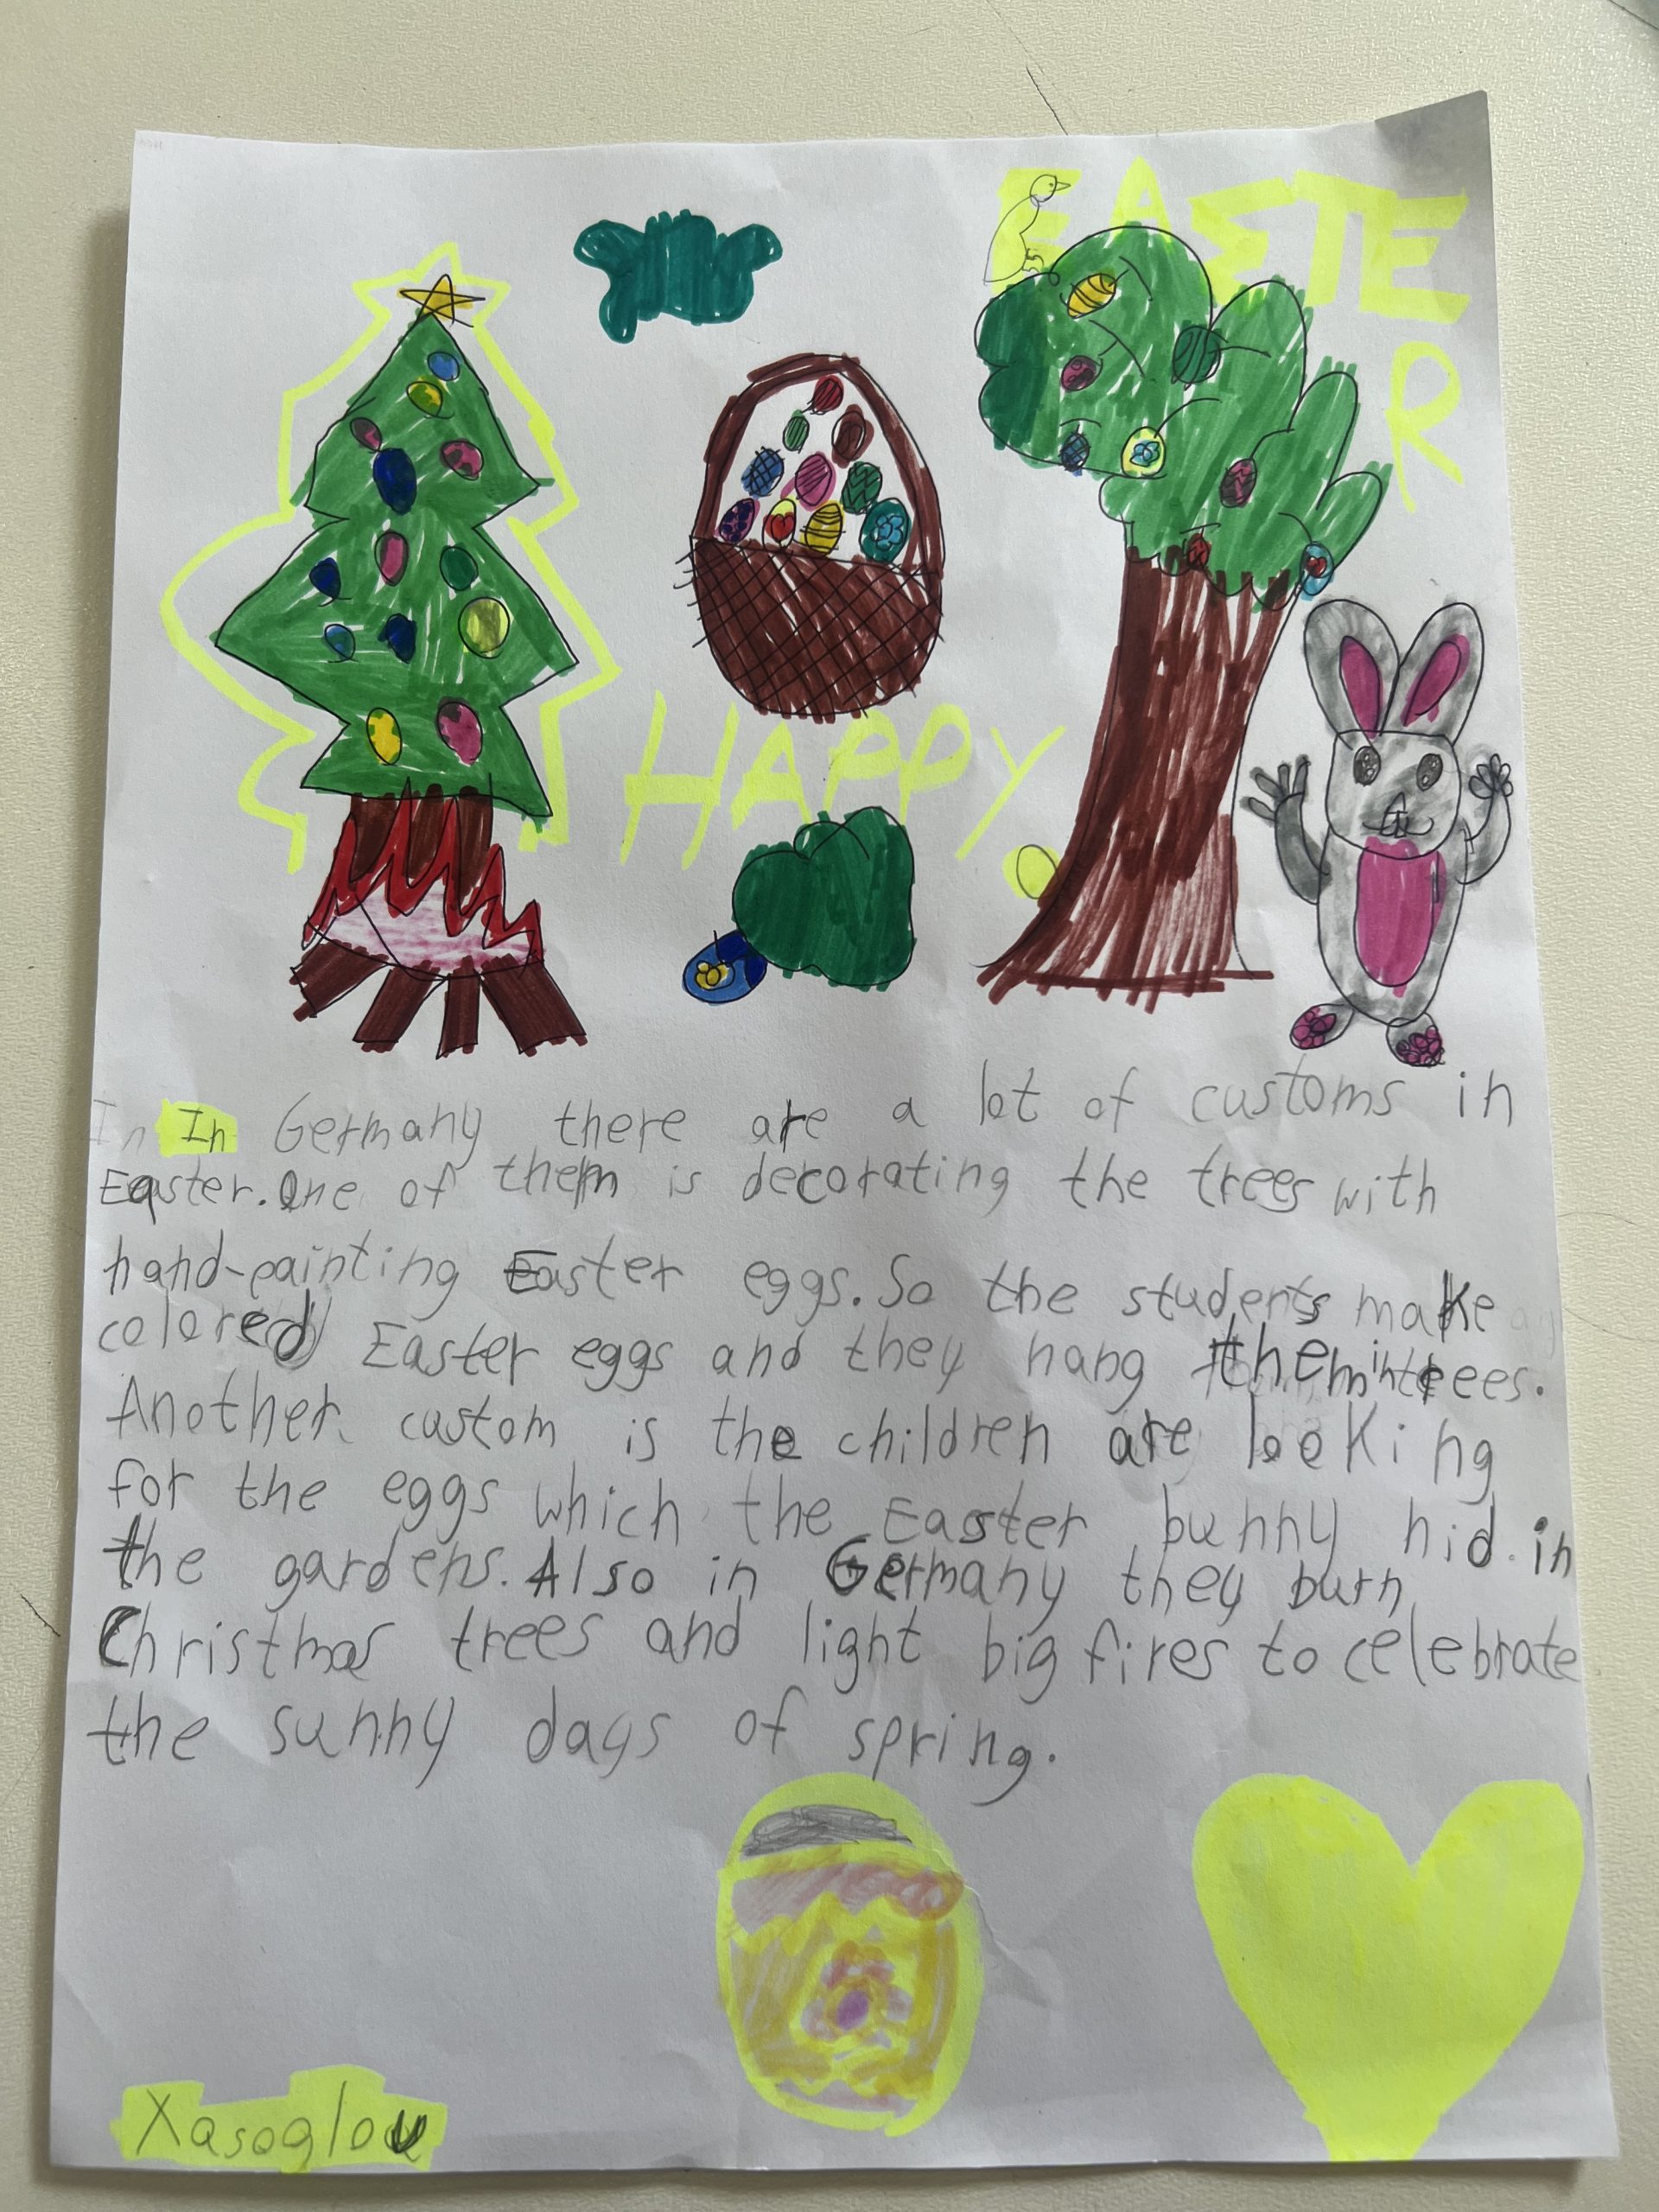 EASTER
HAPPY
In In Germany there are a lot of customs in
Easter. One of them is decorating the trees with
hand-painting Easter eggs. So the students make
colored Easter eggs and they hang them in trees.
Another custom is the children are looking
for the eggs which the Easter bunny hid in
the gardens. Also in Germany they burn
Christmas trees and light big fires to celebrate
the sunny days of spring.
Xasoglou